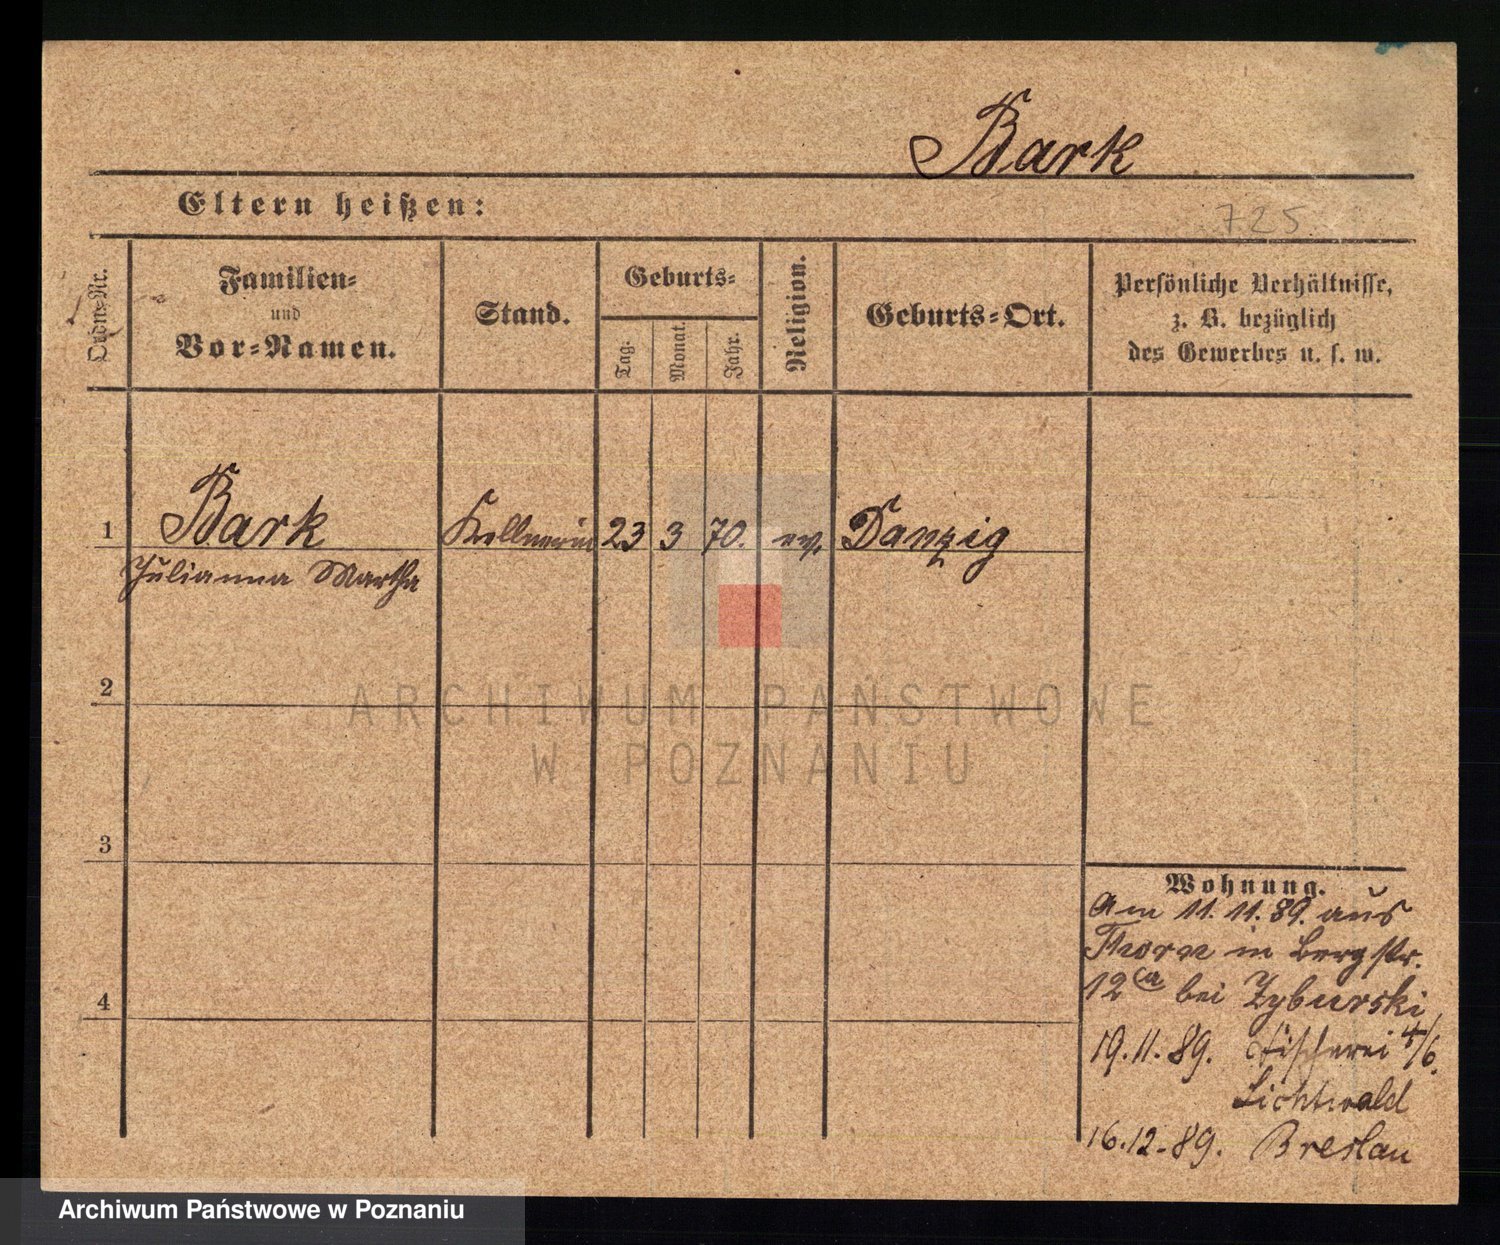 Bark
Eltern heißen:
725
Ordn.-Nr.
Familien-
und
Vor-Namen.
Stand.
Geburts-
Tag.
Monat.
Jahr.
Religion.
Geburts-Ort.
Persönliche Verhältnisse,
z. B. bezüglich
des Gewerbes u. s. w.
1
Bark
Kellnerin
23
3
70.
ev.
Danzig
Julianna Martha
2
ARCHIWUM PAŃSTWOWE
W POZNANIU
3
4
Wohnung.
Am 11.11.89. aus
Thorn in Bergstr.
12a bei Zyburski
19.11.89. Fischerei 4/6.
Lichtwald
16.12.89. Breslau
Archiwum Państwowe w Poznaniu